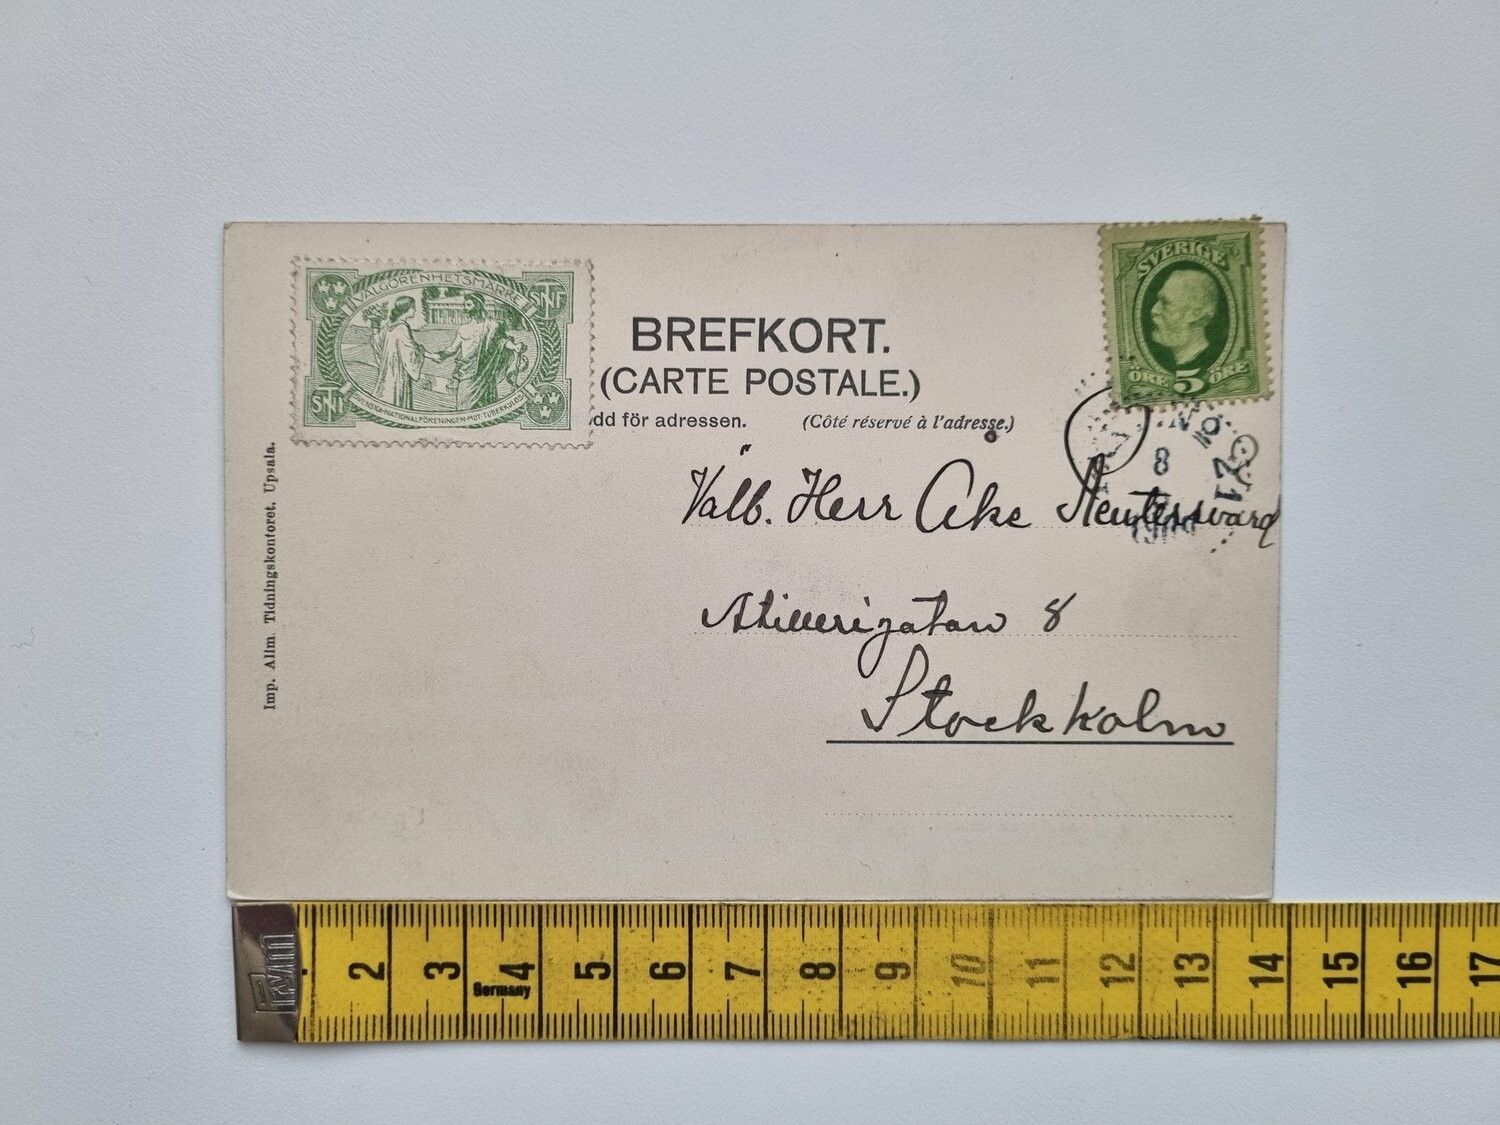 VÄLGÖRENHETSMÄRKE
SNTF
SNTF
SVENSKA·NATIONALFÖRENINGEN·MOT TUBERKULOS
BREFKORT.
(CARTE POSTALE.)
dd för adressen. (Côté réservé à l'adresse.)
SVERIGE
ÖRE 5 ÖRE
8
21
Välb. Herr Åke
8
Stockholm
Imp. Allm Tidningskontoret, Upsala.
Prym
2 3 4 5 6 7 8 9 10 11 12 13 14 15 16 17
Germany